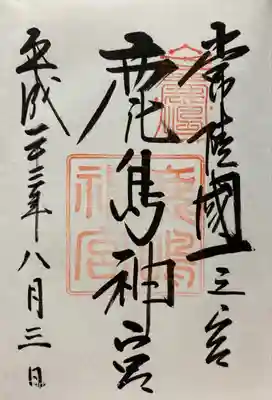 常陸國一之宮
鹿島神宮
平成二十三年八月三日